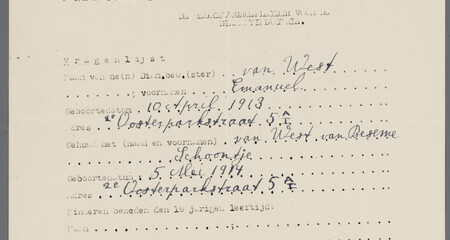 Vragenlijst
Naam van de(n) Dien.bew.(ster) van West
; voornamen Emanuel
Geboortedatum 10 April 1913
Adres 2e Oosterparkstraat 5 A I
Gehuwd met (naam en voornamen) van West van Beseme
Schoontje
Geboortedatum 5 Mei 1914
Adres 2e Oosterparkstraat 5 A I
Kinderen beneden den 16 jarigen leertijd:
Naam ;